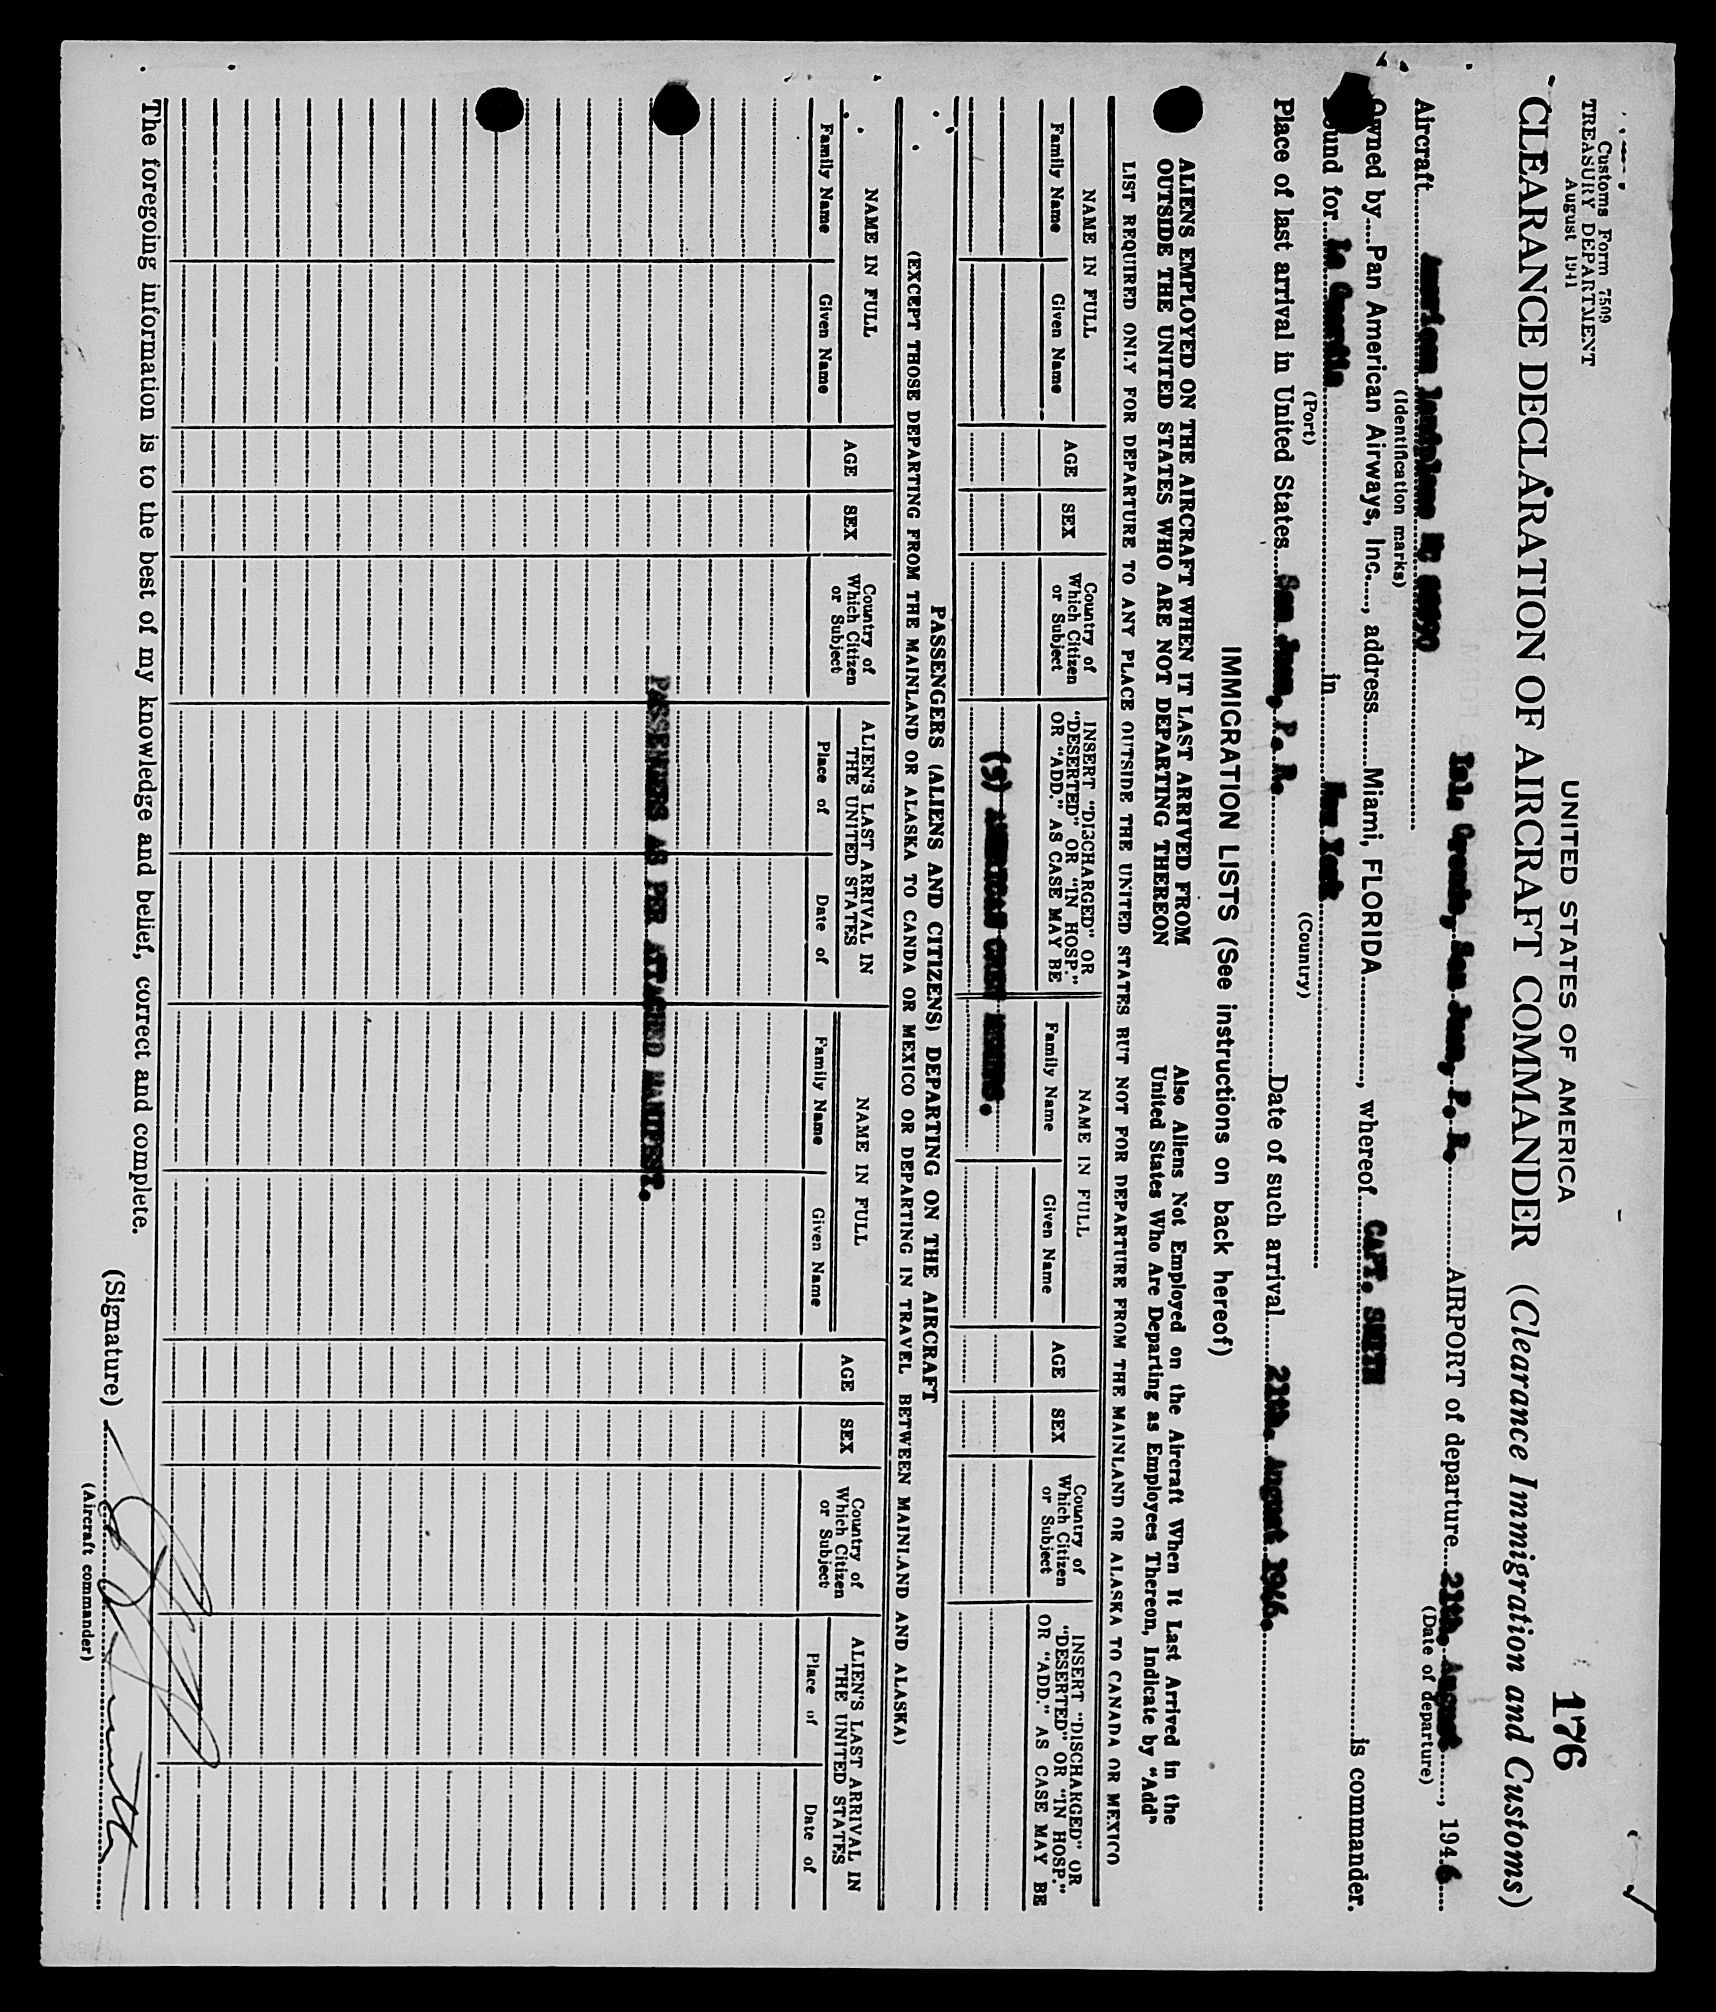 Customs Form 7509
TREASURY DEPARTMENT
August 1941
UNITED STATES OF AMERICA
176
CLEARANCE DECLARATION OF AIRCRAFT COMMANDER (Clearance Immigration and Customs)
Isl. Grande, San Juan, P. R. AIRPORT of departure 21th. August, 1946
(Date of departure)
Aircraft American NC
(Identification marks)
Owned by Pan American Airways, Inc., address Miami, FLORIDA, whereof CAPT. SMITH is commander.
ound for La Guardia in New York
(Port) (Country)
Place of last arrival in United States San Juan, P. R. Date of such arrival 21th. August 1946.
IMMIGRATION LISTS (See instructions on back hereof)
ALIENS EMPLOYED ON THE AIRCRAFT WHEN IT LAST ARRIVED FROM
OUTSIDE THE UNITED STATES WHO ARE NOT DEPARTING THEREON
Also Aliens Not Employed on the Aircraft When It Last Arrived in the
United States Who Are Departing as Employees Thereon, Indicate by "Add"
LIST REQUIRED ONLY FOR DEPARTURE TO ANY PLACE OUTSIDE THE UNITED STATES BUT NOT FOR DEPARTURE FROM THE MAINLAND OR ALASKA TO CANADA OR MEXICO
NAME IN FULL
Family Name
Given Name
AGE
SEX
Country of
Which Citizen
or Subject
INSERT "DI3CHARGED" OR
"DESERTED" OR "IN HOSP."
OR "ADD." AS CASE MAY BE
NAME IN FULL
Family Name
Given Name
AGE
SEX
Country of
Which Citizen
or Subject
INSERT "DISCHARGED" OR
"DESERTED" OR "IN HOSP."
OR "ADD." AS CASE MAY BE
(5) AMERICAN CREW MEMBERS.
PASSENGERS (ALIENS AND CITIZENS) DEPARTING ON THE AIRCRAFT
(EXCEPT THOSE DEPARTING FROM THE MAINLAND OR ALASKA TO CANDA OR MEXICO OR DEPARTING IN TRAVEL BETWEEN MAINLAND AND ALASKA)
NAME IN FULL
Family Name
Given Name
AGE
SEX
Country of
Which Citizen
or Subject
ALIEN'S LAST ARRIVAL IN
THE UNITED STATES
Place of
Date of
NAME IN FULL
Family Name
Given Name
AGE
SEX
Country of
Which Citizen
or Subject
ALIEN'S LAST ARRIVAL IN
THE UNITED STATES
Place of
Date of
PASSENGERS AS PER ATTACHED MANIFEST.
The foregoing information is to the best of my knowledge and belief, correct and complete.
(Signature)
(Aircraft commander)